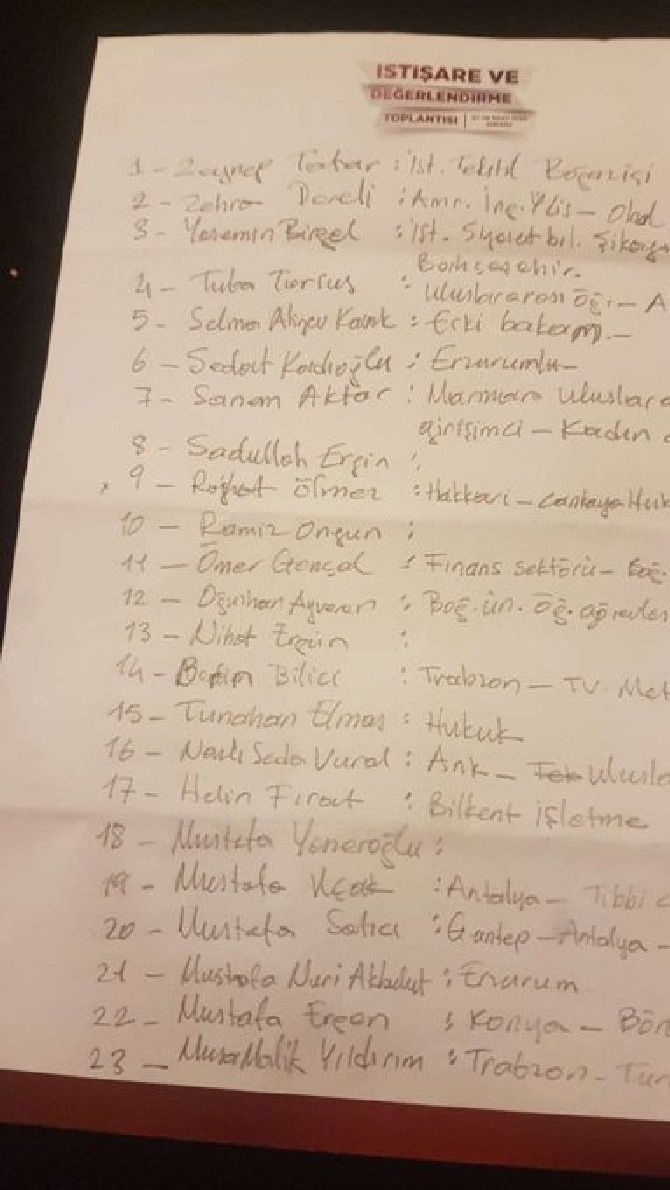 İSTİŞARE VE
DEĞERLENDİRME
TOPLANTISI
1 - Zeynep Tatar : İst. Tekstil
2 - Zehra Dereli : Amr. İng. Ylis - Okul
3 - Yasemin Birgel : İst. Siyaset bil.
Bahçeşehir.
4 - Tuba Tursus : Uluslararası Öğr. - A
5 - Selma Aliye Kavak : Eski bakan -
6 - Sedat Kadıoğlu : Erzurumlu
7 - Sanem Aktar : Marmara Uluslara
girişimci - Kadın
8 - Sadullah Ergin :
9 - Ölmez : Hakkari - Çankaya Huk
10 - Ramiz Ongun :
11 - Ömer Gençal : Finans sektörü - Boğ.
12 - Oğuzhan Ayveren : Boğ. ün. Öğ.
13 - Nihat Ergün :
14 - Bilici : Trabzon - TV. Met
15 - Tunahan Elmas : Hukuk
16 - Nazlı Seda Vural : Ank - Ulusla
17 - Helin Fırat : Bilkent işletme
18 - Mustafa Yeneroğlu :
19 - Mustafa Uçak : Antalya - Tıbbi
20 - Mustafa Satıcı : G.antep - Antalya -
21 - Mustafa Nuri Akbulut : Erzurum
22 - Mustafa Ergen : Konya -
23 - Musa Malik Yıldırım : Trabzon -